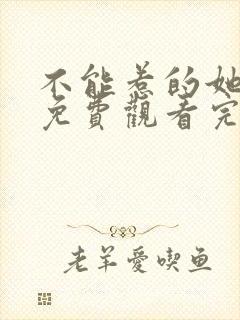 不能惹的她
免費觀看完
老羊愛喫鱼